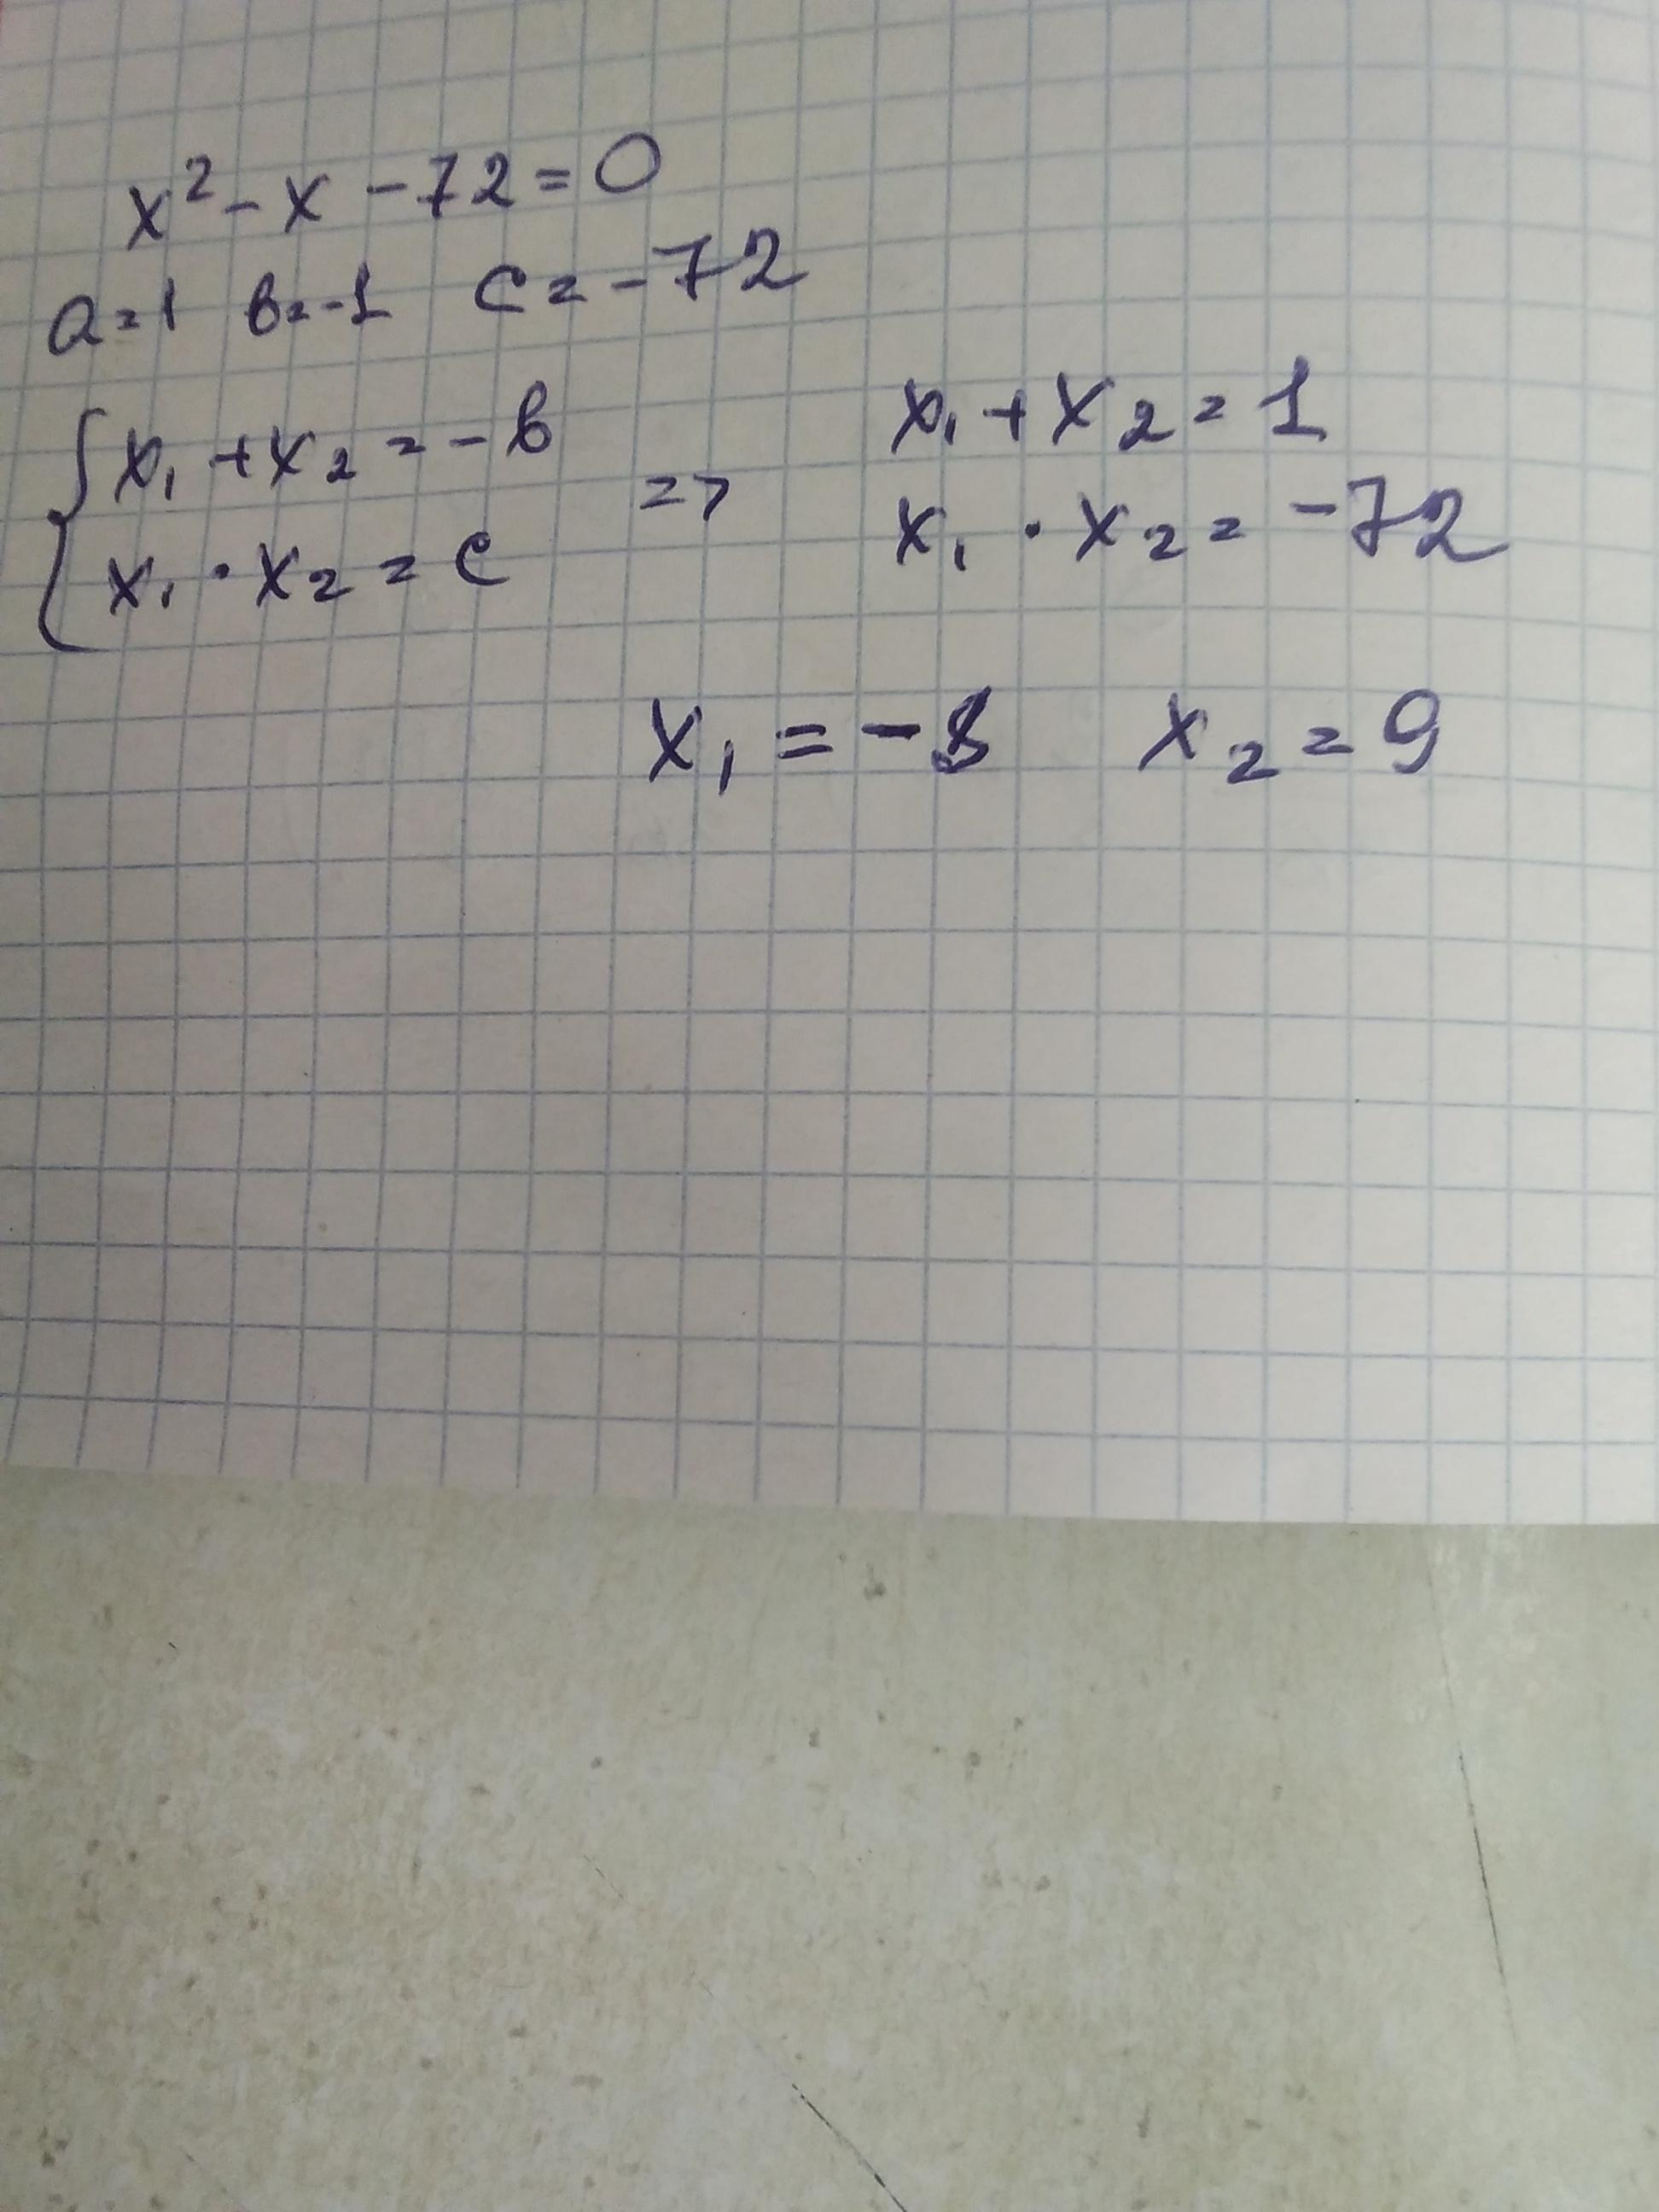 x² - x - 72 = 0
a = 1 в = -1 c = -72
{ x₁ + x₂ = - в => x₁ + x₂ = 1
x₁ · x₂ = c x₁ · x₂ = -72
x₁ = -8 x₂ = 9